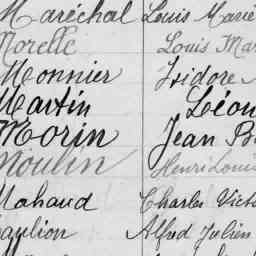 Maréchal Louis Marie
Morelle Louis Mar
Monnier Isidore
Martin Léon
Morin Jean B
Moulin Henri Louis
Mahaud Charles Vict
aulion Alfred Julien